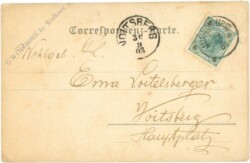 Correspondenz-Karte.
VOITSBERG
3
03
Erna Loitelsberger
Voitsberg
Hauptplatz